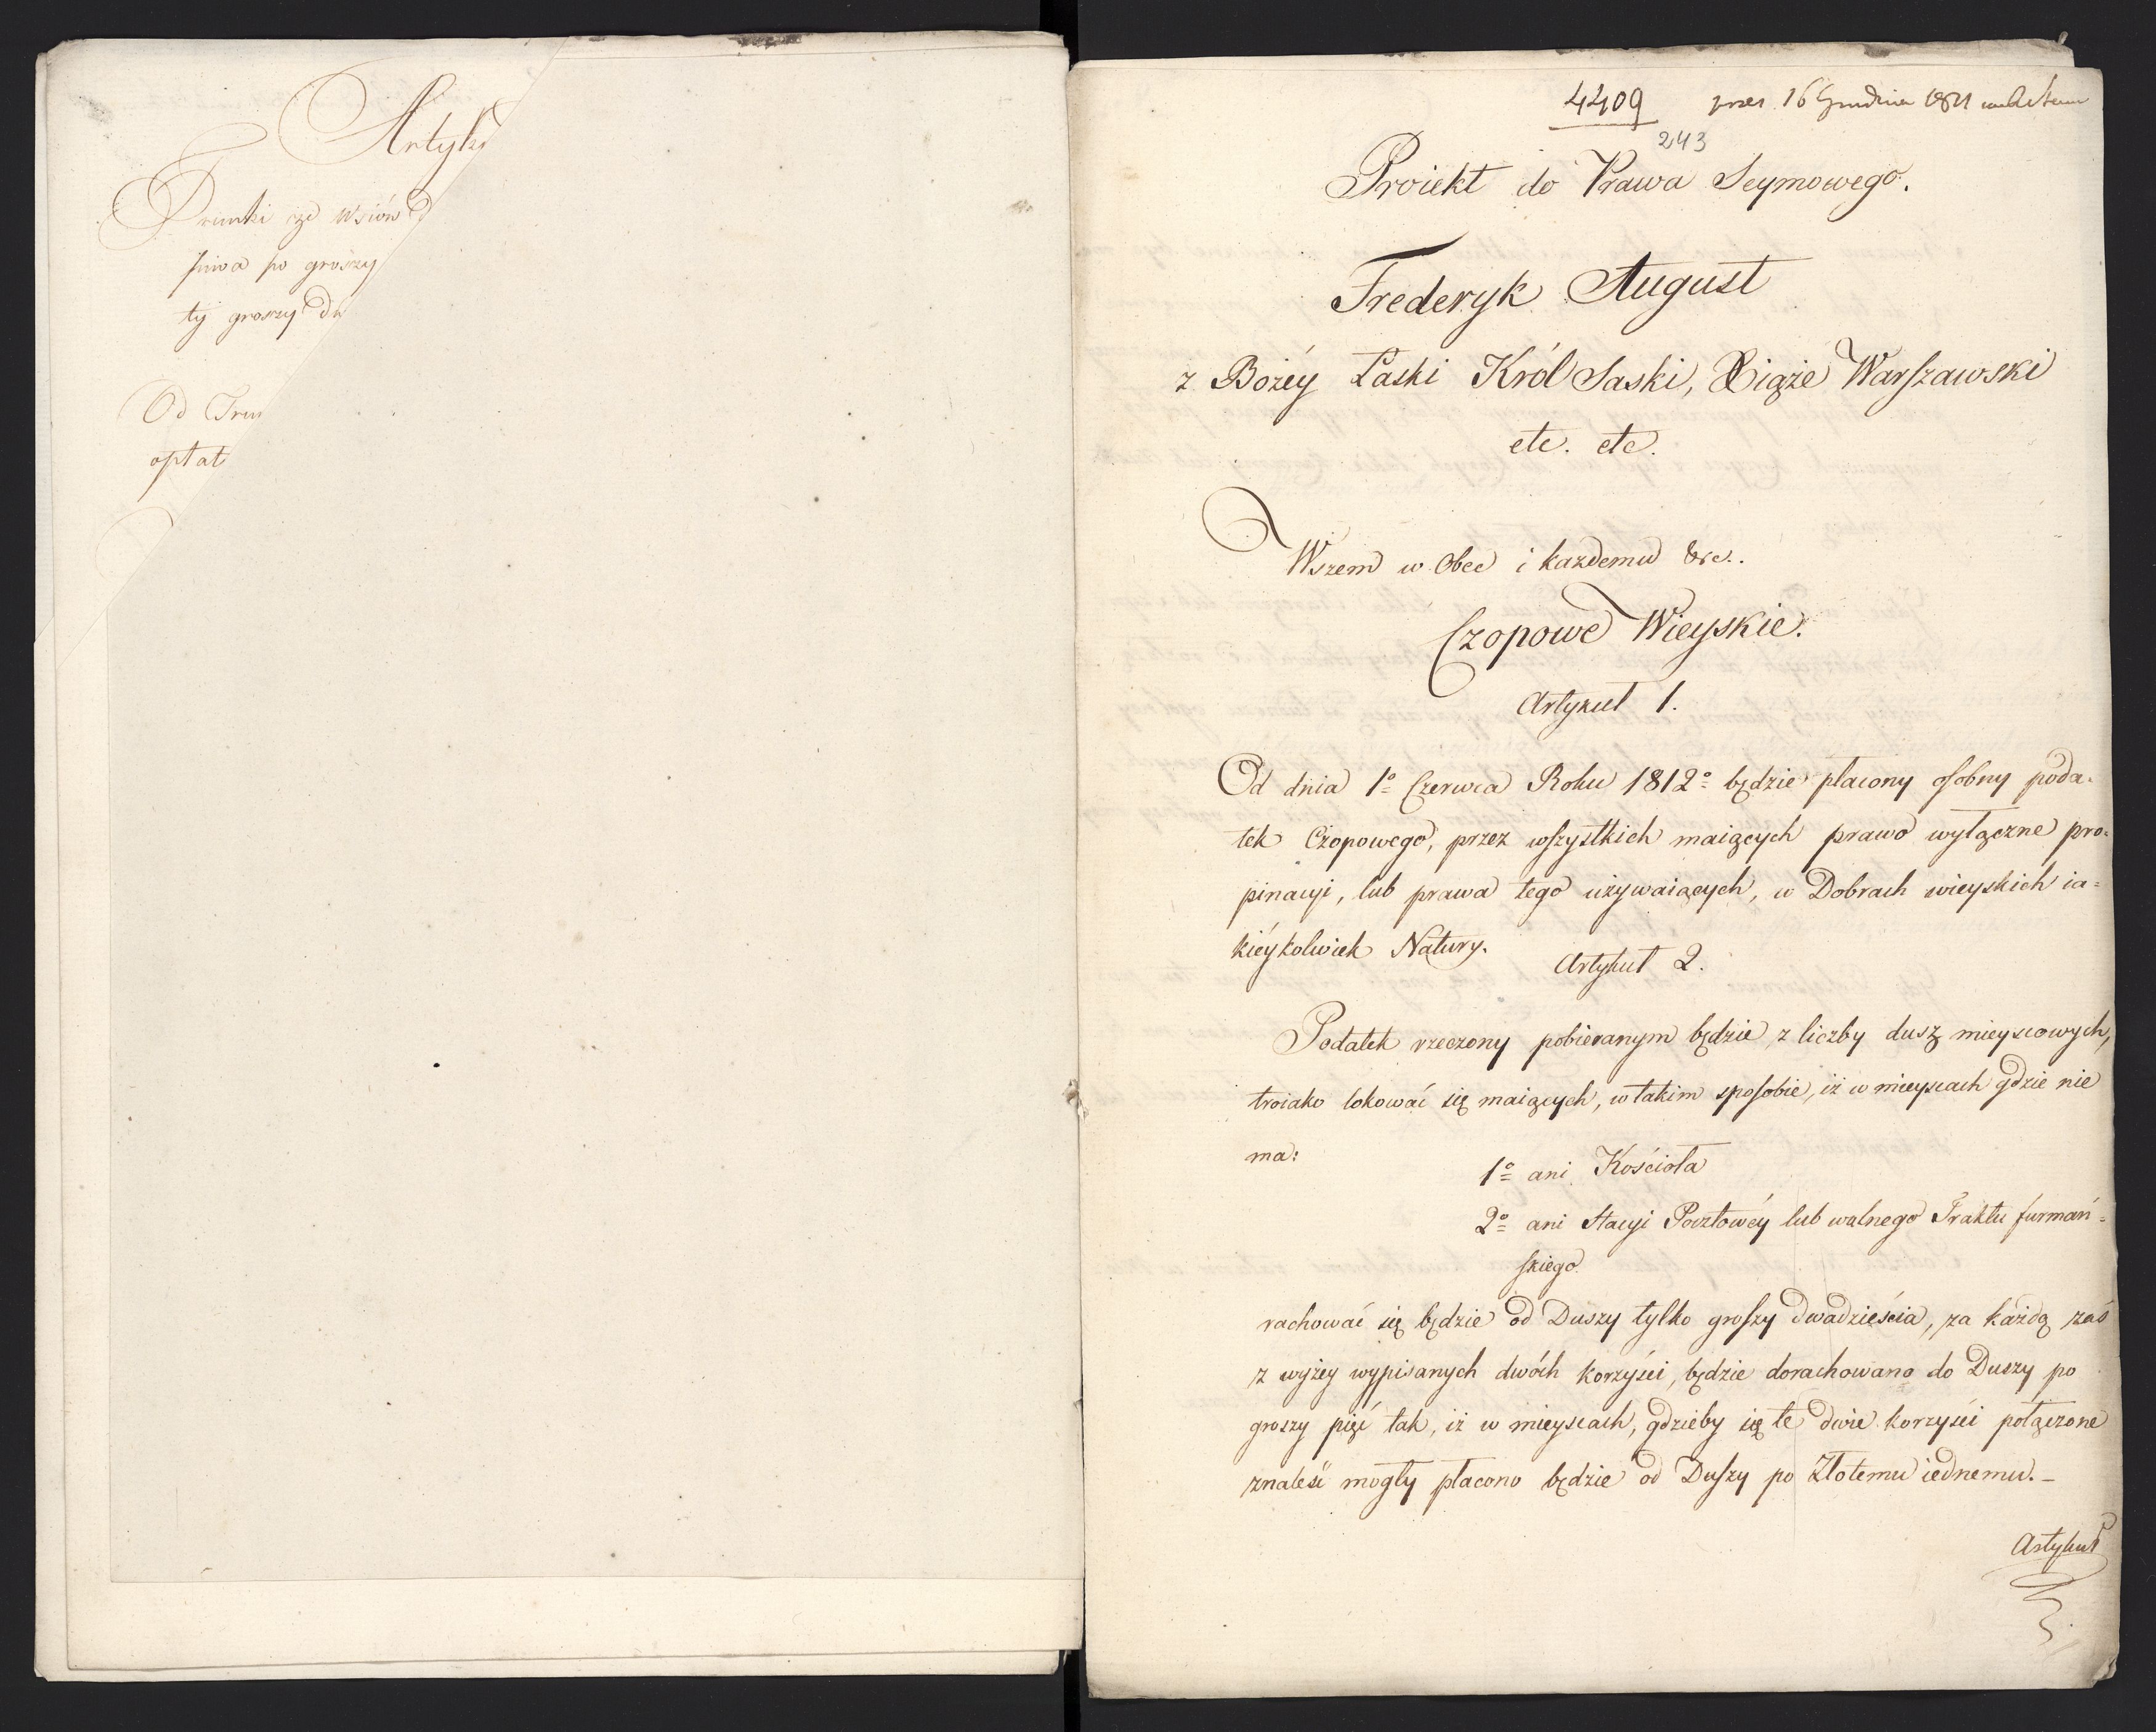 Artyku
Trunki ze wsiów d
piwa po groszy
ty groszy dw
Od Trun
opłat
4409
16 Grudnia 1811
243
Proiekt do Prawa Seymowego.
Frederyk August
z Bożéy Łaski Król Saski, Xiąże Warszawski
etc. etc.
Wszem w Obec i każdemu &c.
Czopowe Wieyskie.
Artykuł 1.
Od dnia 1º Czerwca Roku 1812º będzie płacony osobny poda-
tek Czopowego, przez wszystkich maiących prawo wyłączne pro=
pinacyi, lub prawa tego używaiących, w Dobrach wieyskich ia=
kiéykolwiek Natury.
Artykuł 2.
Podatek rzeczony pobieranym będzie z liczby dusz mieyscowych,
troiako lokować się maiących, w takim sposobie, iż w mieyscach gdzie nie
ma:
1º ani Kościoła
2º ani Stacyi Pocztowéy lub walnego Traktu furmań=
skiego
rachować się będzie od Duszy tylko groszy dwadzieścia, za każdą zaś
z wyżey wypisanych dwóch korzyści, będzie dorachowano do Duszy po
groszy pięć tak, iż w mieyscach, gdzieby się te dwie korzyści połączone
znaleść mogły płacono będzie od Duszy po Złotemu iednemu.-
Artykuł